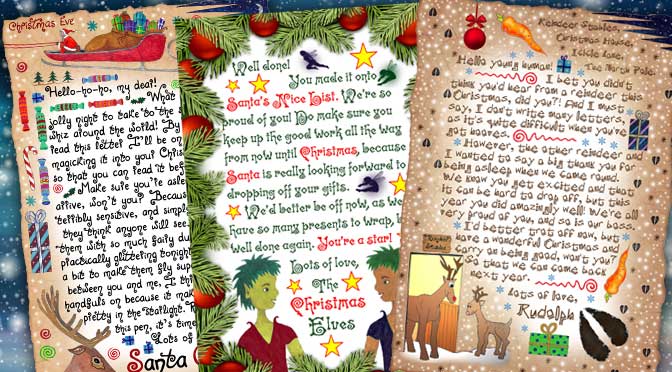 Christmas Eve
Hello-ho-ho, my dear!
What
jolly night to take to the s
whiz around the world! By
read this letter I'll be on
magicking it into your Chris
so that you can read it bef
Make sure you're asle
arrive, won't you? Becaus
terribly sensitive, and simply
they think anyone will see.
them with so much fairy du
practically glittering tonigh
a bit to make them fly sup
between you and me, I thi
handfuls on because it mak
pretty in the starlight.
this pen, it's time
Lots of
Santa
Well done!
You made it onto
Santa's Nice List. We're so
proud of you! Do make sure you
keep up the good work all the way
from now until Christmas, because
Santa is really looking forward to
dropping off your gifts.
We'd better be off now, as we
have so many presents to wrap, b
well done again. You're a star!
Lots of love,
The
Christmas
Elves
Reindeer Stables,
Christmas House,
Ickle Lane,
The North Pole.
Hello young human!
I bet you didn't
think you'd hear from a reindeer this
Christmas, did you?! And I must
say, I don't write many letters,
as it's quite difficult when you've
got hooves.
However, the other reindeer and
I wanted to say a big thank you for
being asleep when we came round.
We know you get excited and that
it can be hard to drop off, but this
year you did amazingly well! We're all
very proud of you, and so is our boss.
I'd better trot off now, but
have a wonderful Christmas and
carry on being good, won't you?
So that we can come back
next year.
Lots of love,
Rudolph